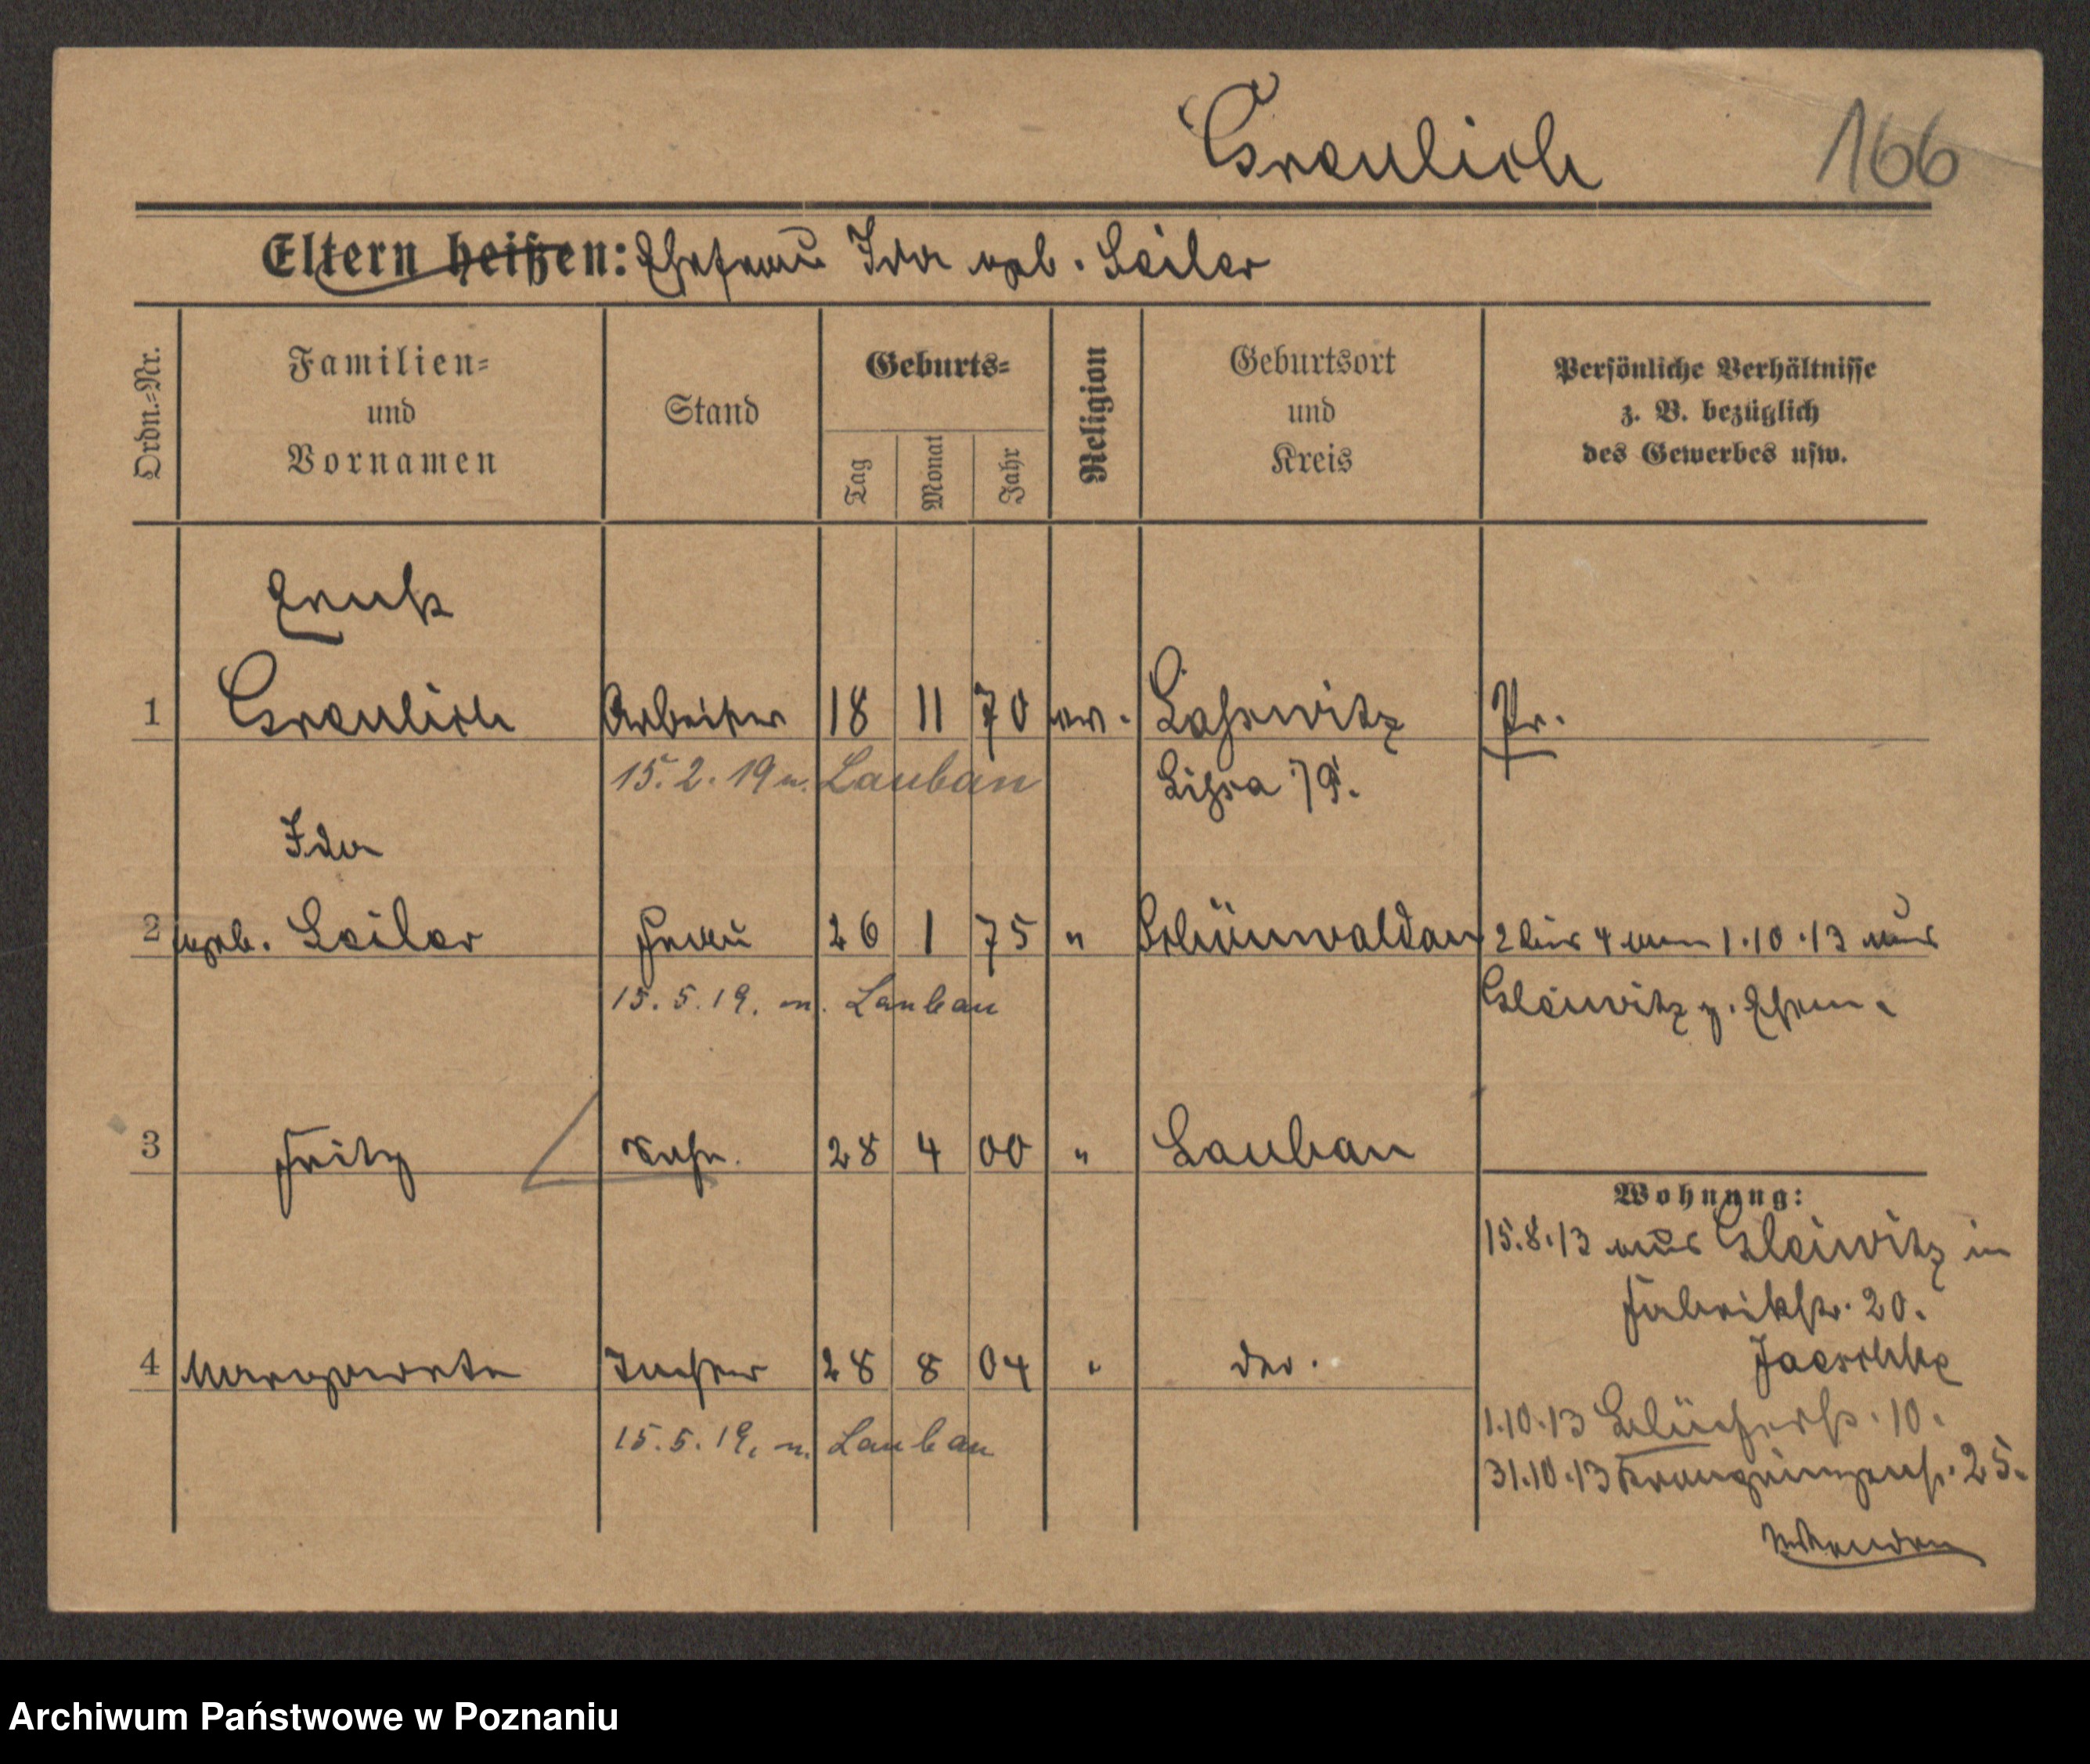 Greulich
166
Eltern heißen: Ehefrau Ida geb. Seiler
Ordn.=Nr.
Familien=
und
Vornamen
Stand
Geburts=
Tag
Monat
Jahr
Religion
Geburtsort
und
Kreis
Persönliche Verhältnisse
z. B. bezüglich
des Gewerbes usw.
Ernst
1 Greulich Arbeiter 18 11 70 ev. Lasswitz Pr.
15.2.19 n. Lauban
Lissa
Ida
2 geb. Seiler Frau 26 1 75 " Schönwaldau 2 bis 4 vom 1.10.13 aus
15.5.19. n. Lauban
Gleiwitz z. Ehem.
3 Fritz Sohn 28 4 00 " Lauban
Wohnung:
15.8.13 aus Gleiwitz in
Fabrikstr. 20.
Jaeschke
4 Margarete Tochter 28 8 04 " do.
1.10.13 Blücherstr. 10.
15.5.19. n. Lauban
31.10.13 25.